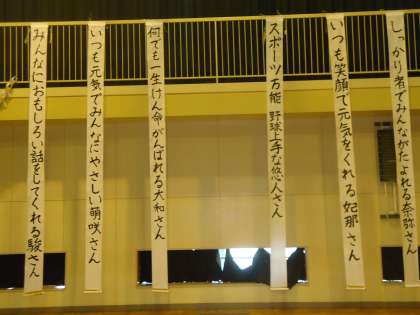 しっかり者でみんながたよれる奈弥さん
いつも笑顔で元気をくれる妃那さん
スポーツ万能 野球上手な悠人さん
何でも一生けん命がんばれる大和さん
いつも元気でみんなにやさしい萌咲さん
みんなにおもしろい話をしてくれる駿さん